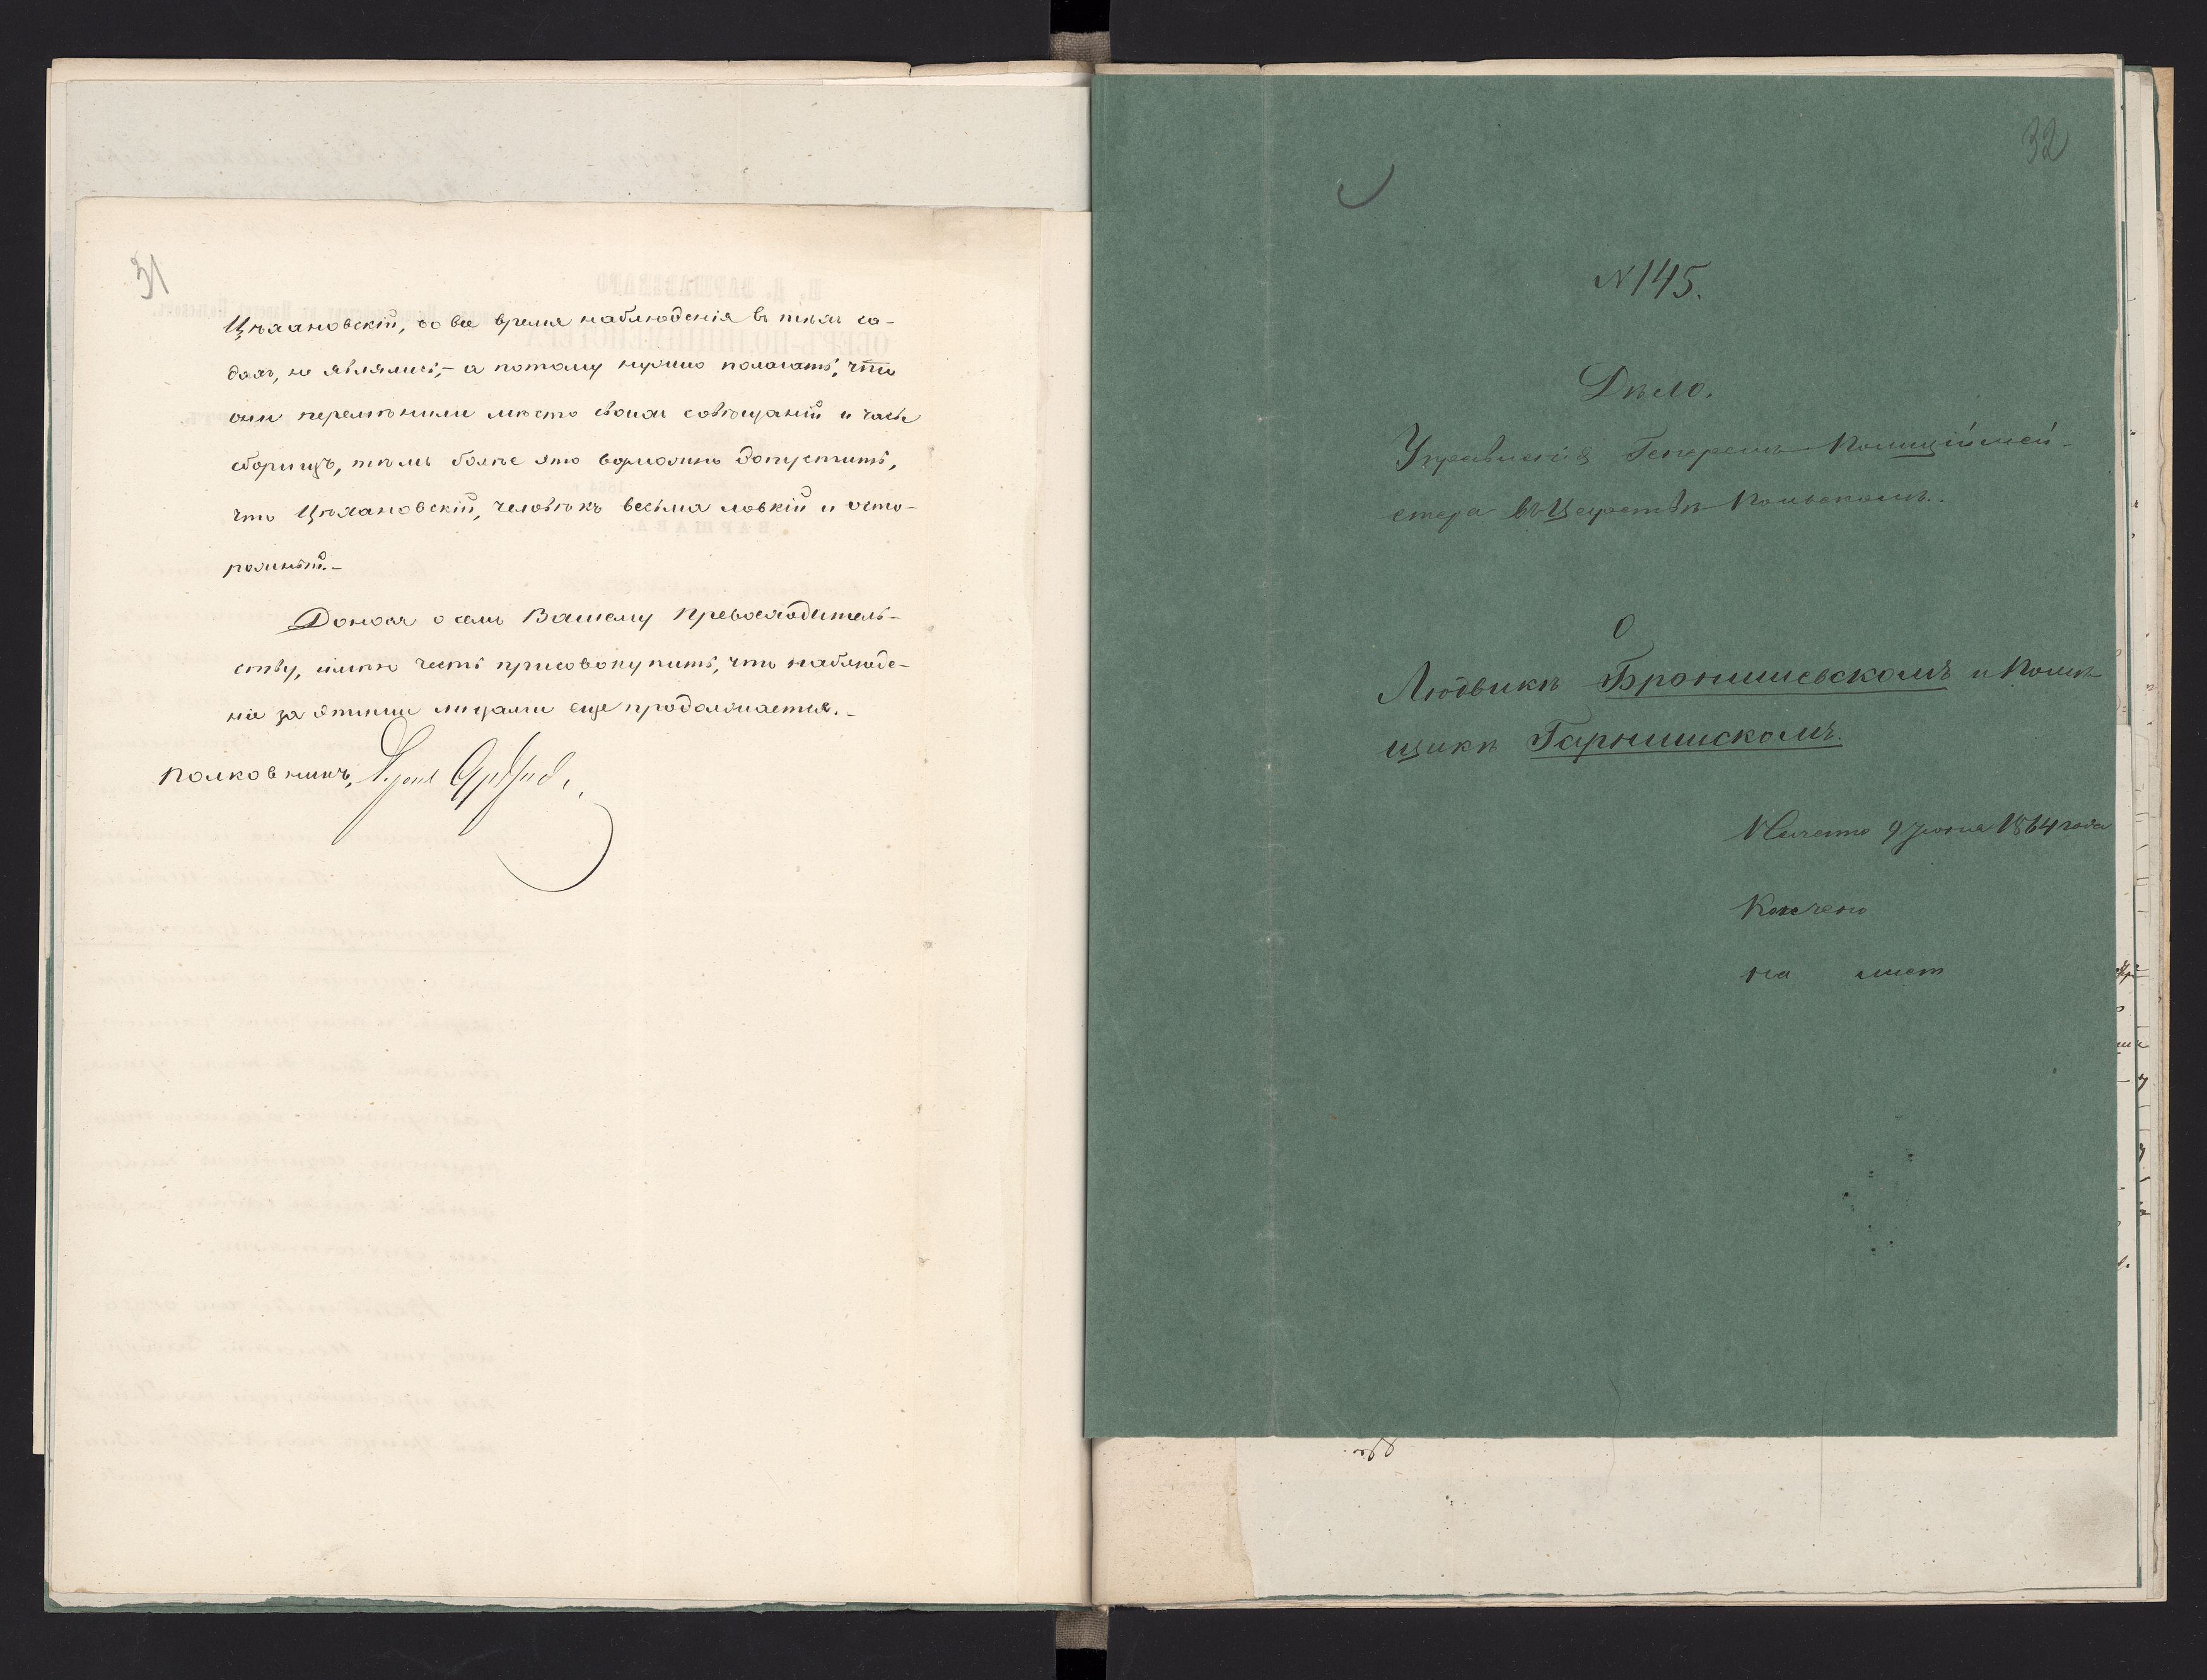 31
Цѣхановскій, во все время наблюденія въ тѣхъ са-
дахъ, не являлись, - а потому нужно полагать, что
они перемѣнили мѣсто своихъ совѣщаній и часы
сборищъ, тѣмъ болѣе это возможно допустить,
что Цѣхановскій, человѣкъ весьма ловкій и осто-
рожный. -
Донося о семъ Вашему Превосходитель-
ству, имѣю честь присовокупить, что наблюде-
ніе за этими лицами еще продолжается. -
Полковникъ,
32
N 145.
Дѣло.
Управленія Генералъ Полиціймей-
стера въ Царствѣ Польскомъ.
О
Людвикѣ Бронишевскомъ и Помѣ-
щикѣ Гарнишскомъ.
Начато 9 Іюня 1864 года
Кончено
на лист